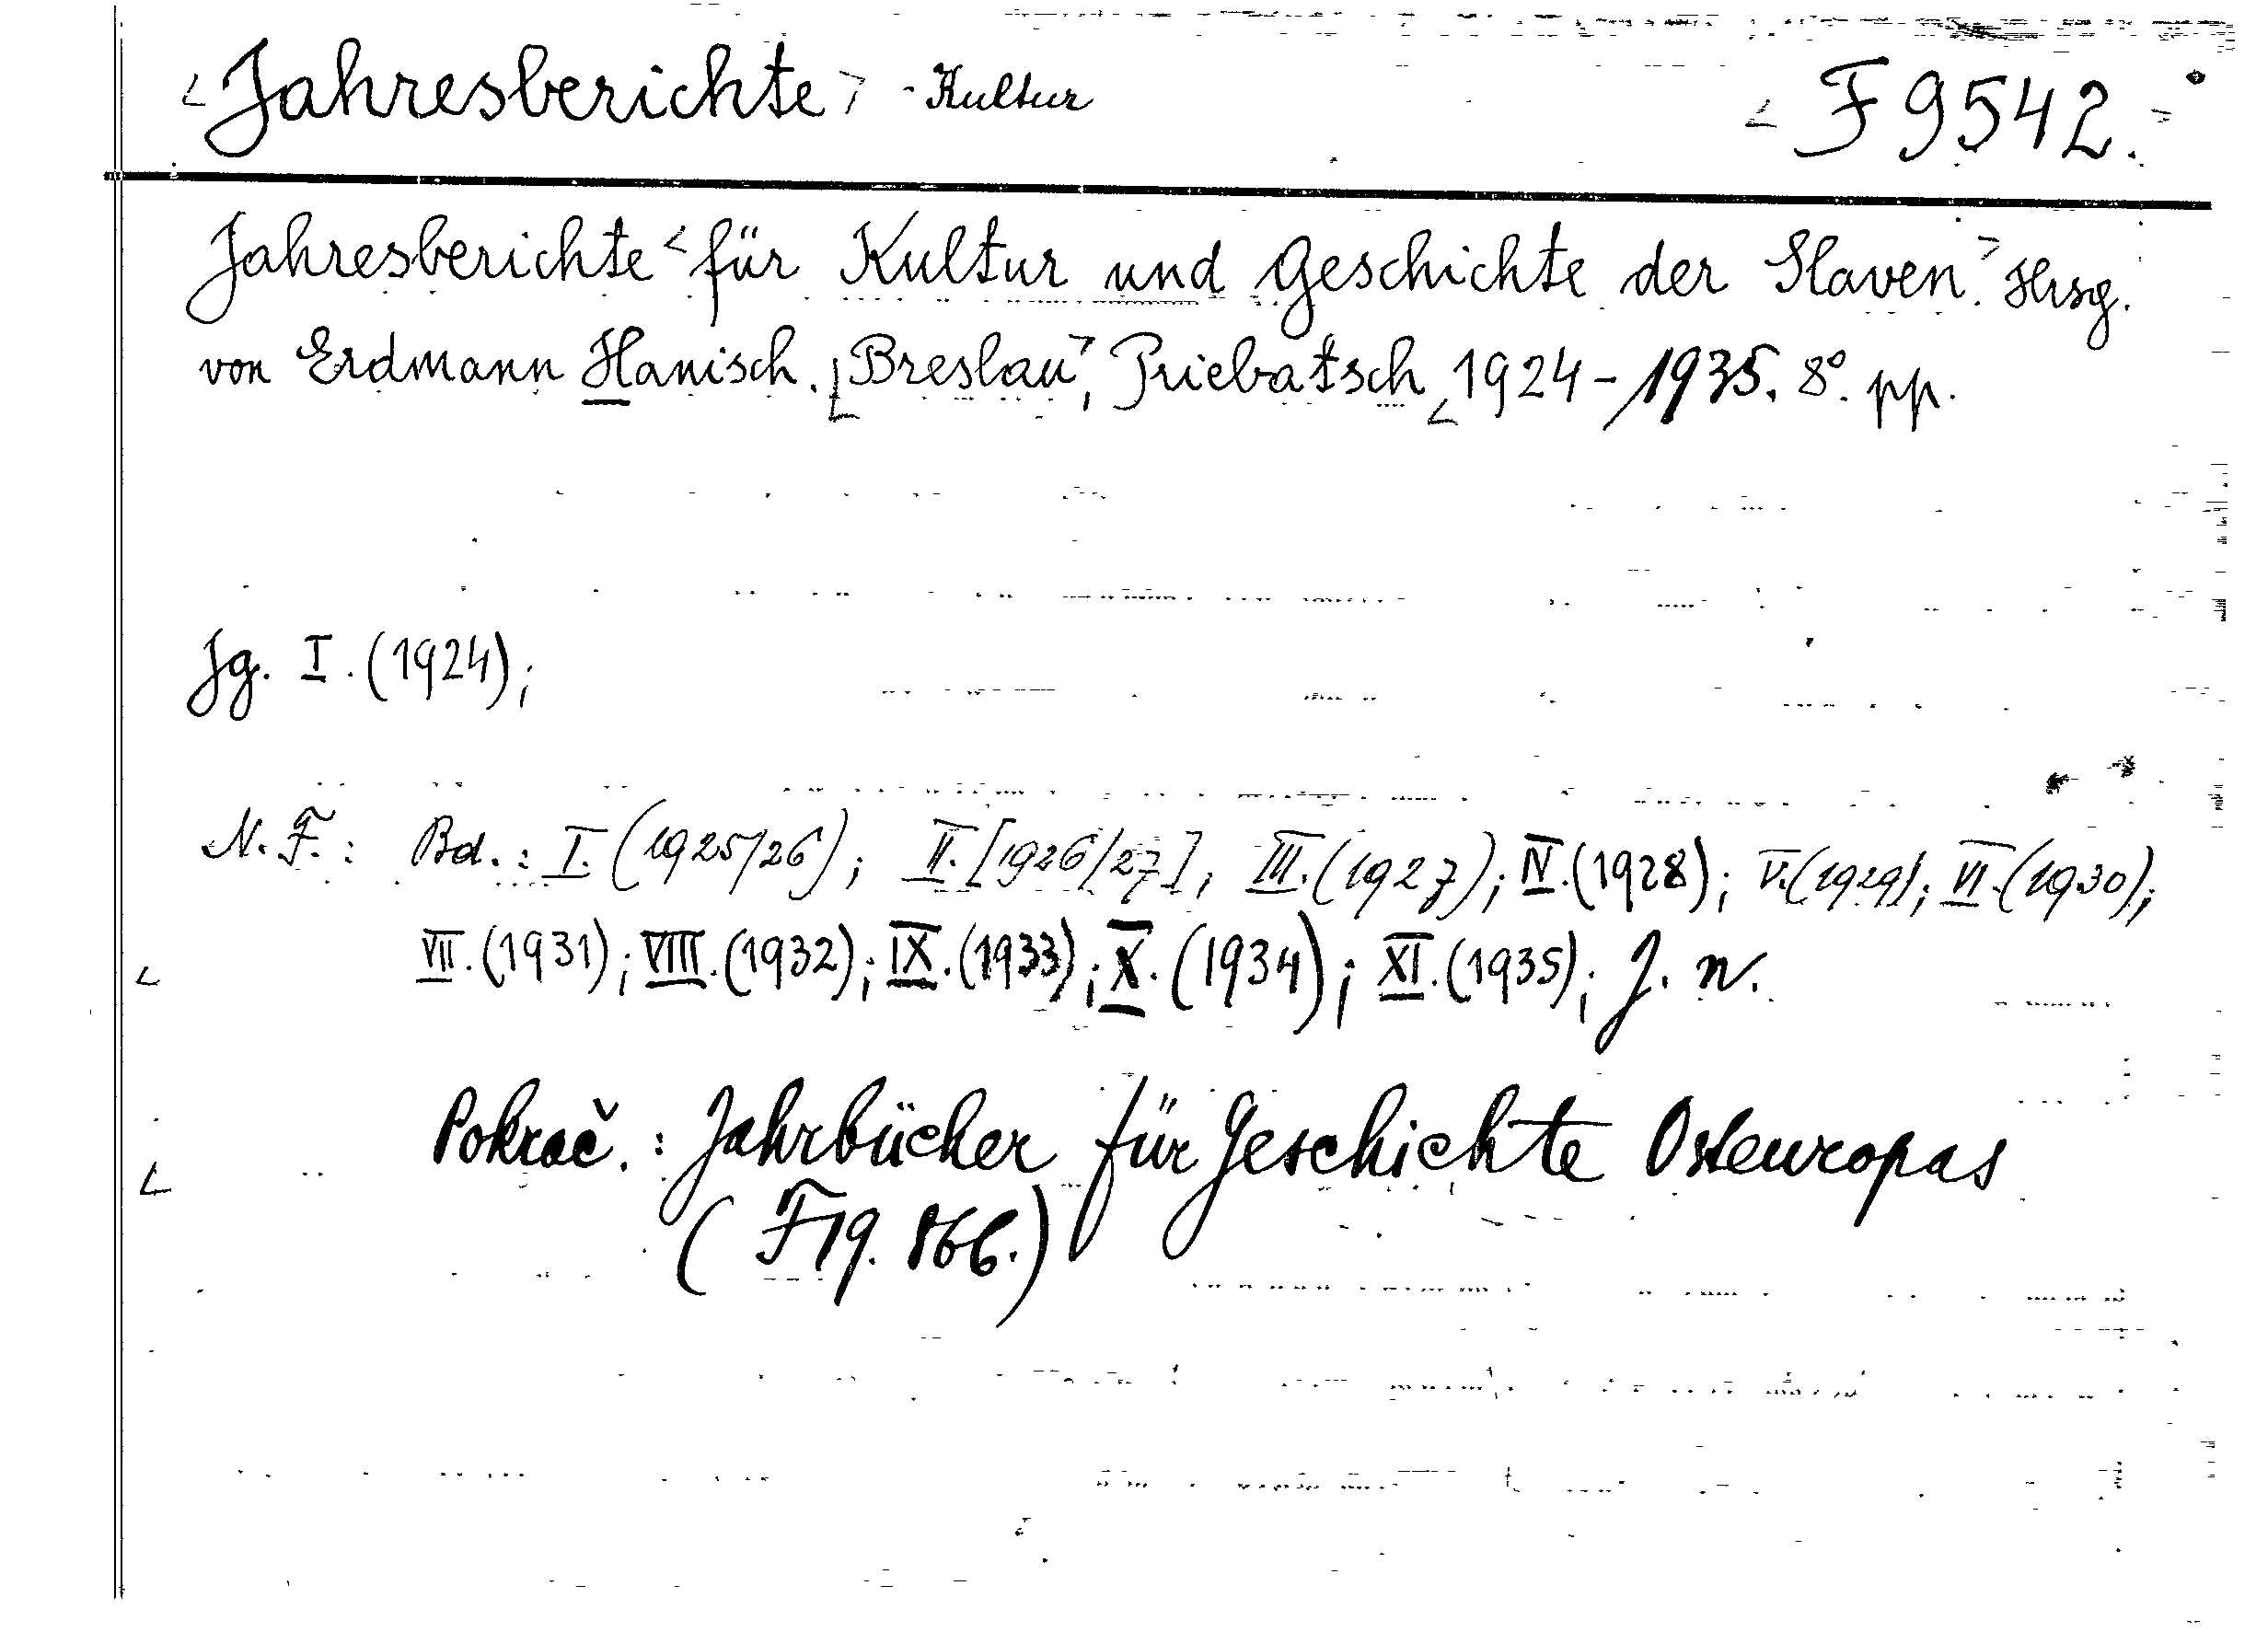 <Jahresberichte> - Kultur
<F 9542.>
Jahresberichte <für Kultur und Geschichte der Slaven.> Hrsg.
von Erdmann Hanisch. <Breslau>, Priebatsch <1924-1935. 8°. pp.
Jg. I. (1924);
N. F.: Bd.: I. (1925/26); II. [1926/27]; III. (1927); IV. (1928); V. (1929); VI. (1930);
VII. (1931); VIII. (1932); IX. (1933); X. (1934); XI. (1935); J. n.
Pokrač.: Jahrbücher für Geschichte Osteuropas
(F 19.866.)